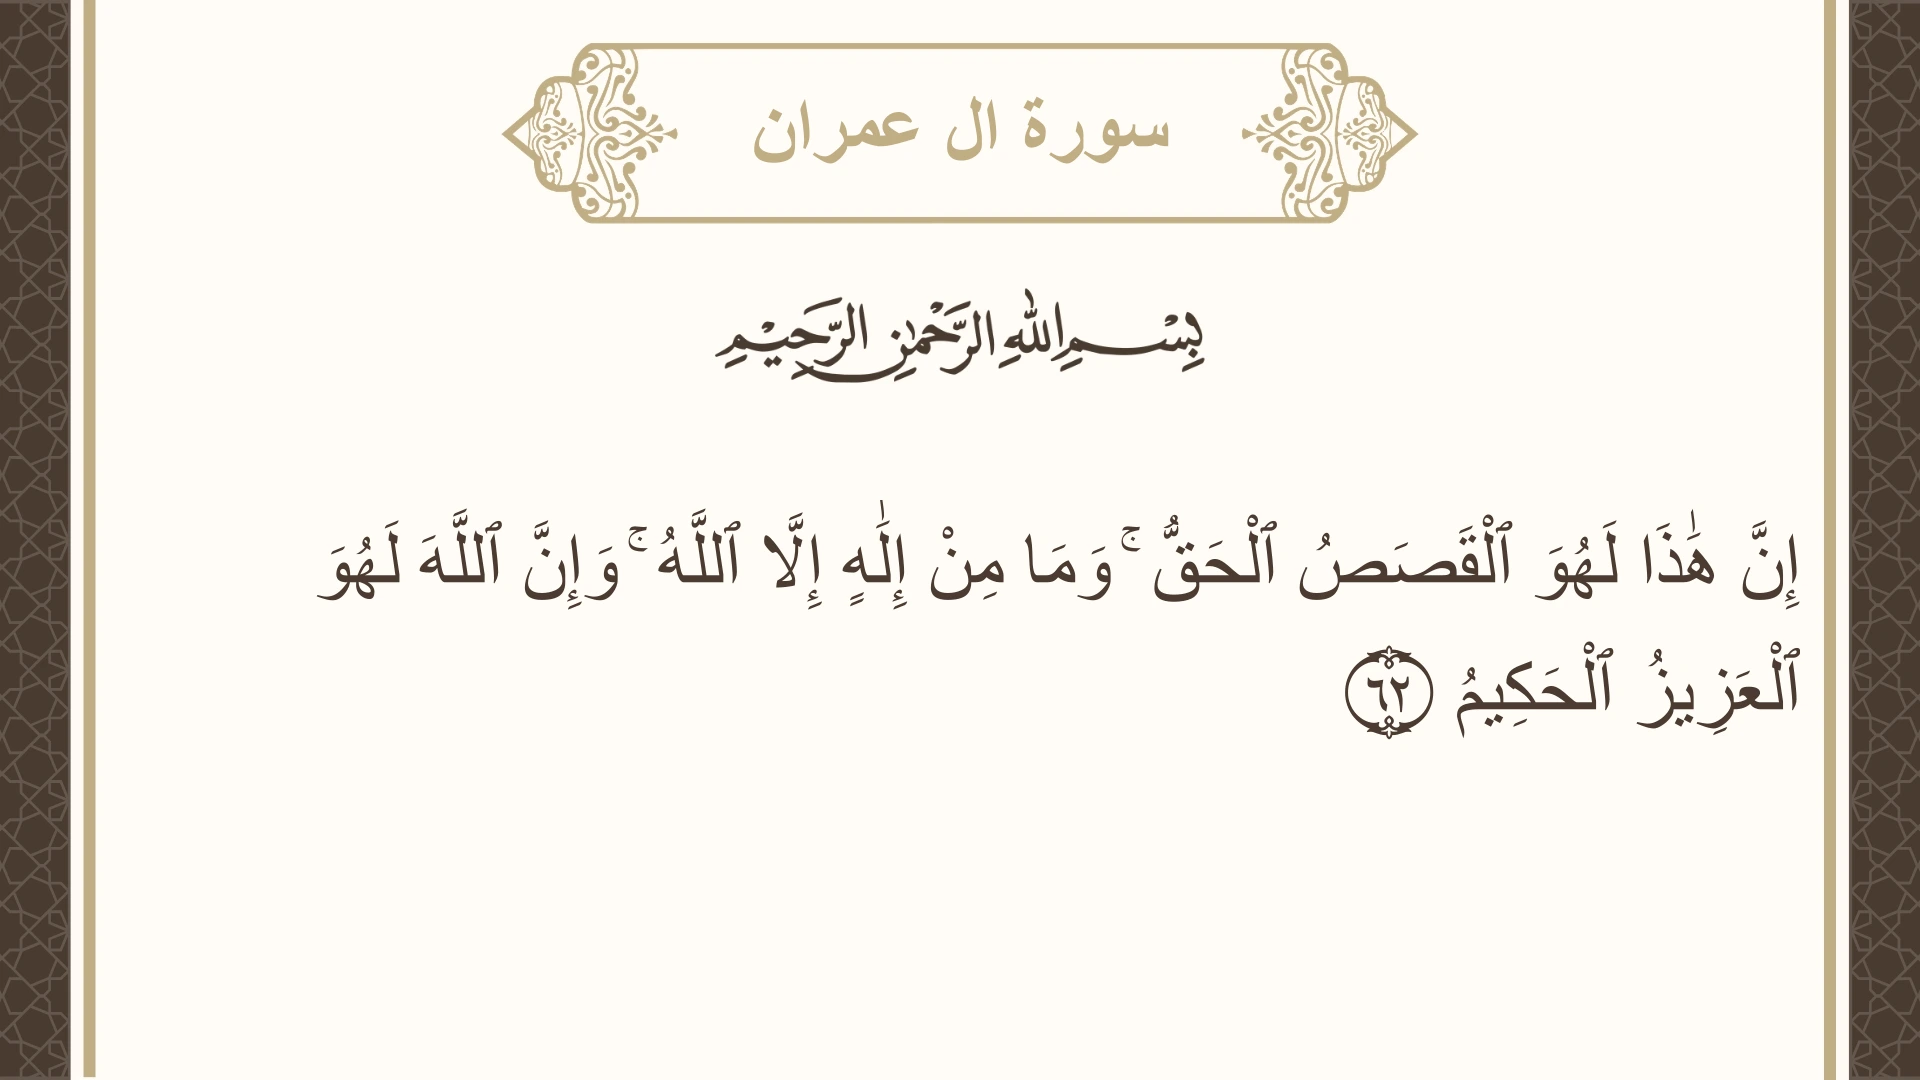 سورة ال عمران
بِسْمِ اللهِ الرَّحْمٰنِ الرَّحِيْمِ
إِنَّ هَٰذَا لَهُوَ ٱلْقَصَصُ ٱلْحَقُّ ۚ وَمَا مِنْ إِلَٰهٍ إِلَّا ٱللَّهُ ۚ وَإِنَّ ٱللَّهَ لَهُوَ
ٱلْعَزِيزُ ٱلْحَكِيمُ ۝٦٢